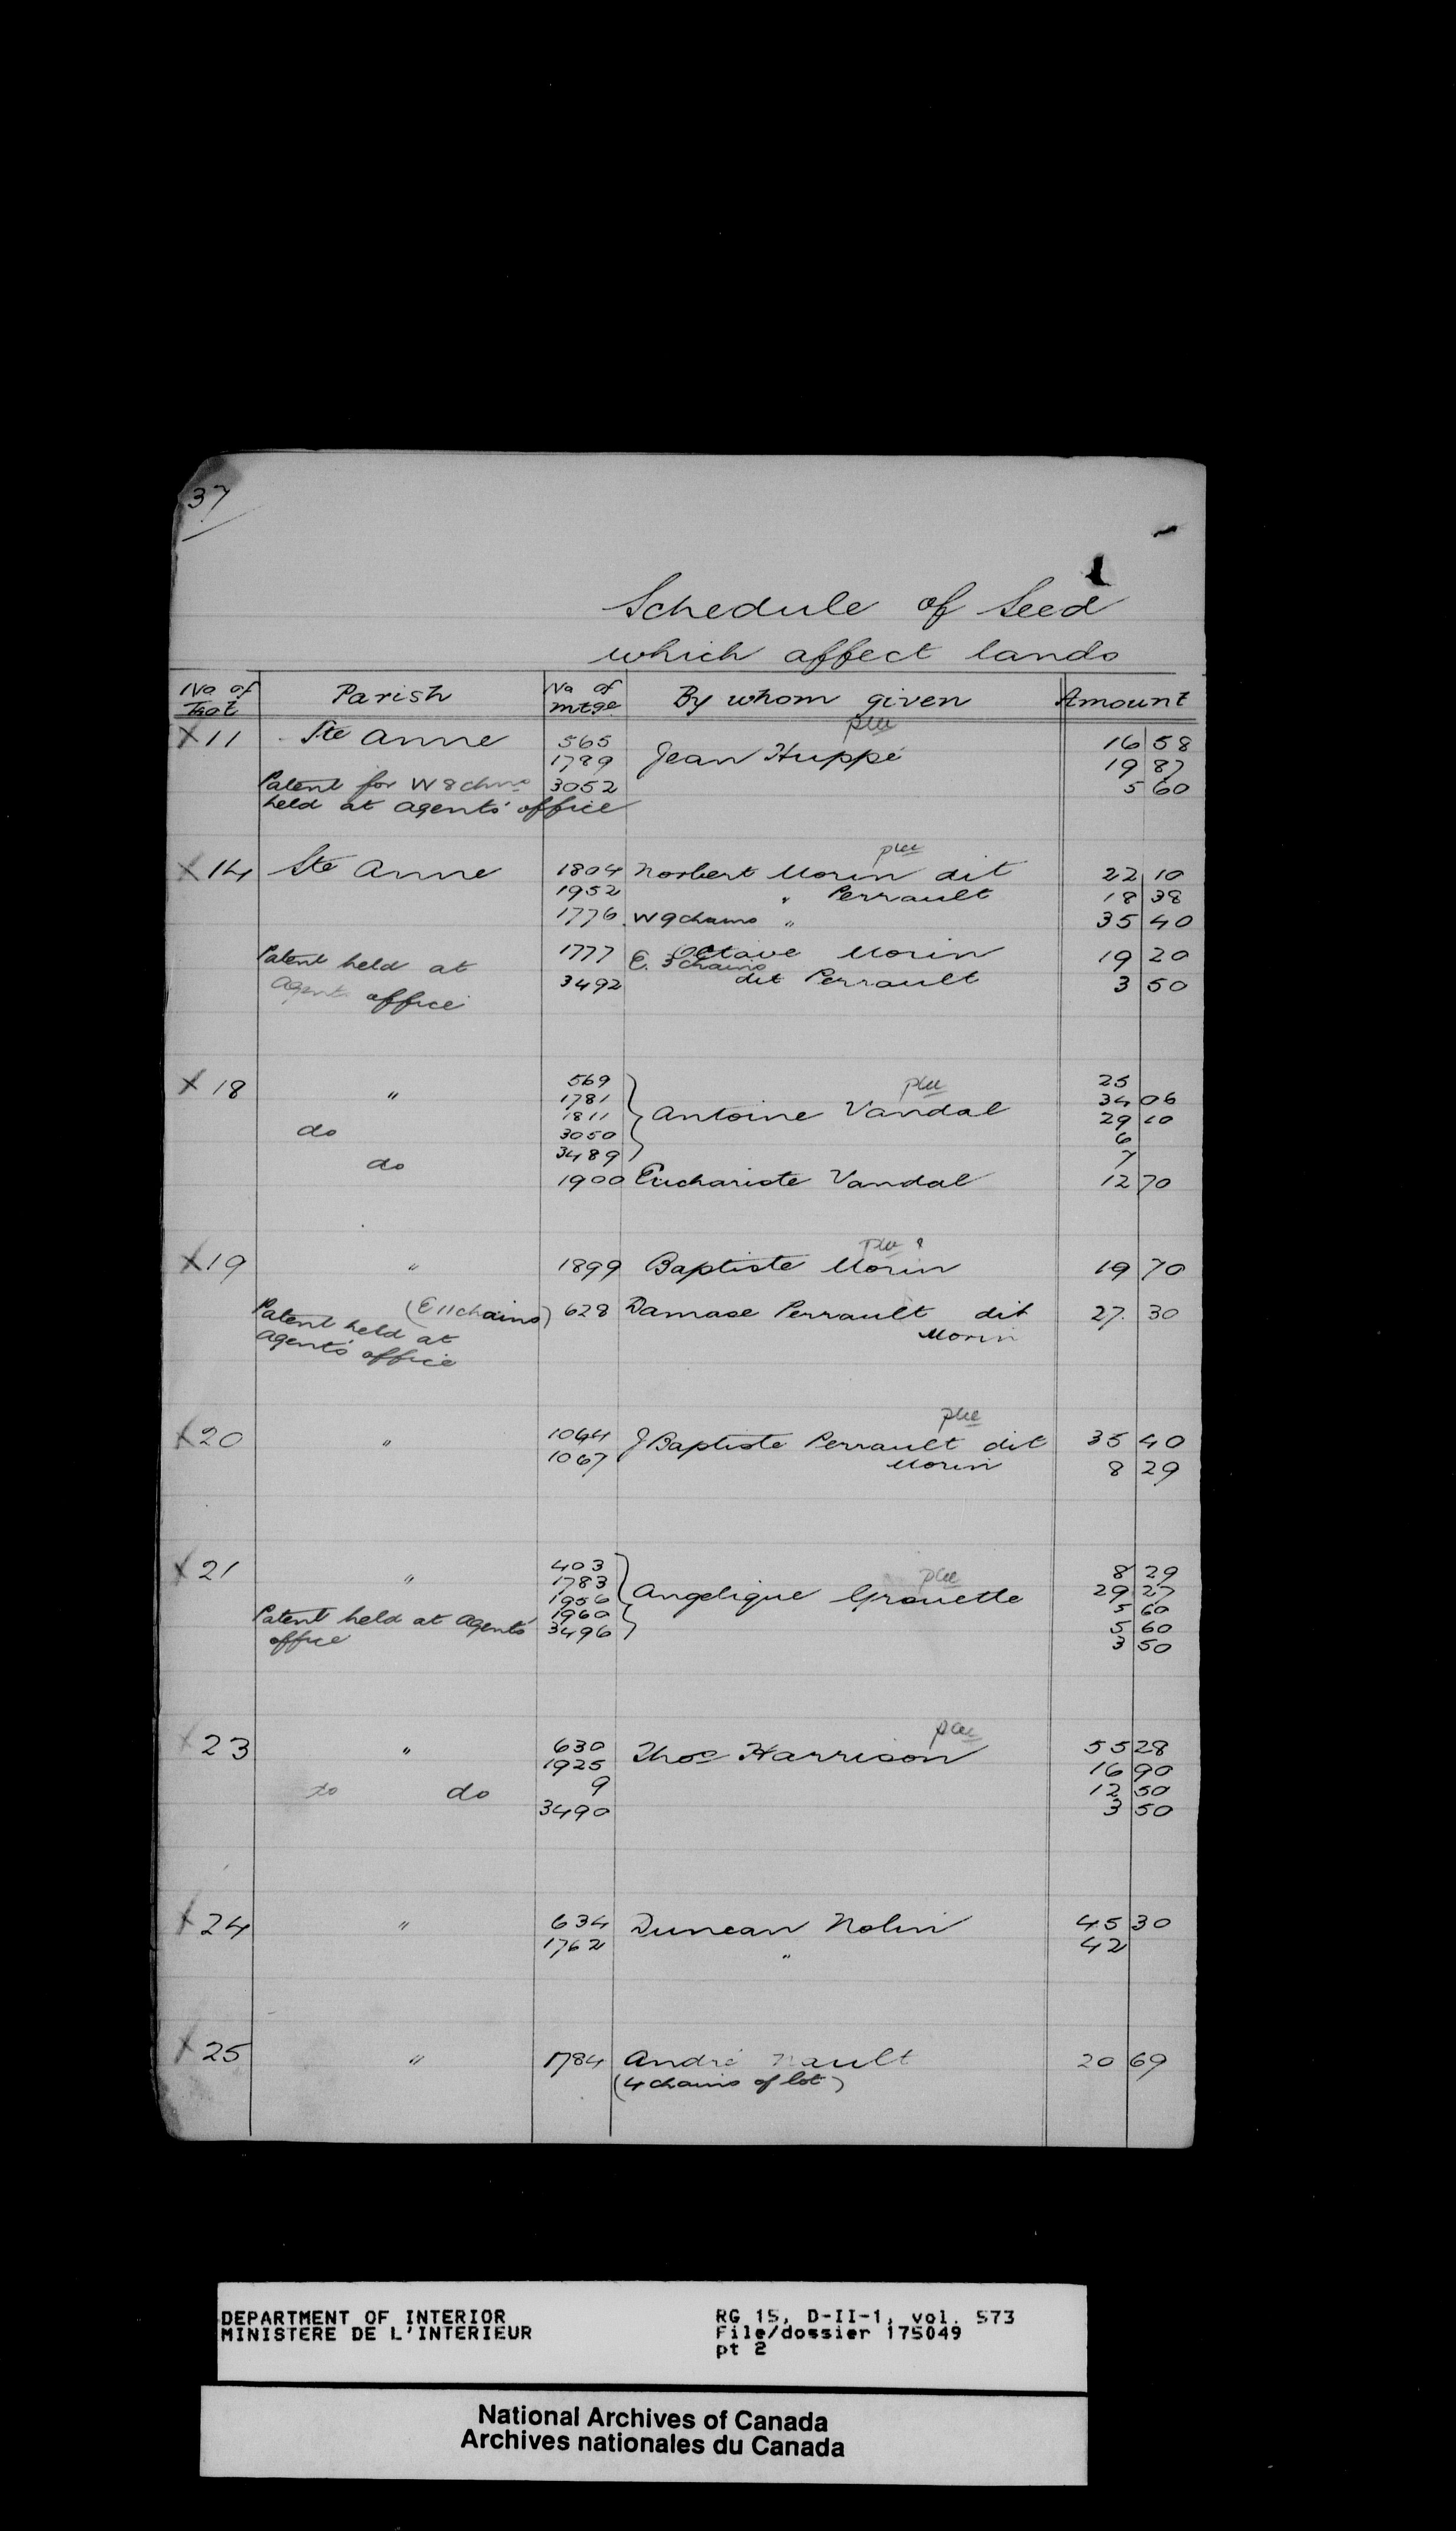 37
1
Schedule of Seed
which affect lands
No of Parish No of By whom given Amount
Lot mtge
X 11 Ste Anne 565 Jean Huppé 16 58
1789 19 87
Patent for W 8 chns 3052 5 60
held at agents' office
X 14 Ste Anne 1804 Norbert Morin dit 22 10
1952 " Perrault 18 38
1776 W 9 chains " 35 40
Patent held at 1777 Octave Morin 19 20
E. 3 chains
Agents office 3492 dit Perrault 3 50
X 18 " 569 25
1781 34 06
1811 Antoine Vandal 29 10
do 3050 6
do 3489 7
1900 Euchariste Vandal 12 70
X 19 " 1899 Baptiste Morin 19 70
(E 11 chains) 628 Damase Perrault dit 27. 30
Patent held at Morin
agents' office
X 20 " 1044 J Baptiste Perrault dit 35 40
1067 Morin 8 29
X 21 " 403 8 29
1783 Angelique Grouette 29 27
1956 5 60
Patent held at Agents' 1960 5 60
office 3496 3 50
X 23 " 630 Thos Harrison 55 28
1925 16 90
do do 9 12 50
3490 3 50
X 24 " 634 Duncan Nolin 45 30
1762 " 42
X 25 " 1784 André Nault 20 69
(4 chains of lot)
DEPARTMENT OF INTERIOR RG 15, D-II-1, vol. 573
MINISTERE DE L'INTERIEUR File/dossier 175049
pt 2
National Archives of Canada
Archives nationales du Canada